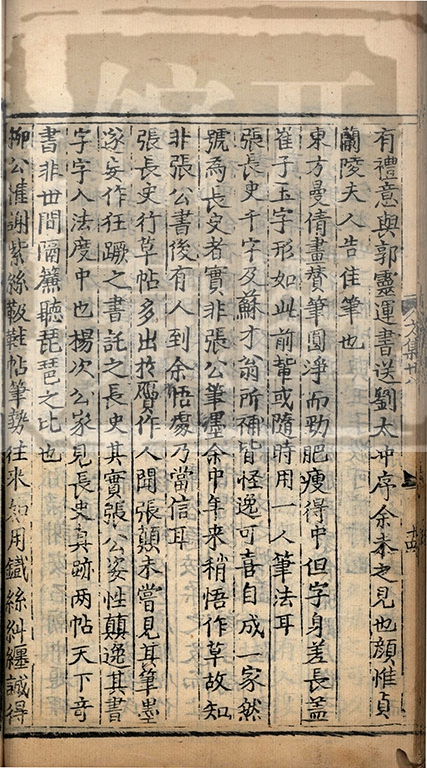 有禮意與郭靈運書送劉太冲序余未之見也顔惟貞
蘭陵夫人告佳筆也
東方曼倩畫賛筆圓淨而勁肥瘦得中但字身差長葢
崔子玉字形如此前軰或隨時用一人筆法耳
張長史千字及蘇才翁所補皆怪逸可喜自成一家然
號爲長史者實非張公筆墨余中年来稍悟作草故知
非張公書後有人到余悟處乃當信耳
張長史行草帖多出於贋作人聞張顛未嘗見其筆墨
遂妄作狂蹶之書託之長史其實張公姿性顛逸其書
字字入法度中也楊次公家見長史真跡兩帖天下竒
書非世間隔簾聽琵琶之比也
柳公權謝紫絲靸鞋帖筆勢往来如用鐵絲糾纒誠得
文集廿八
十四